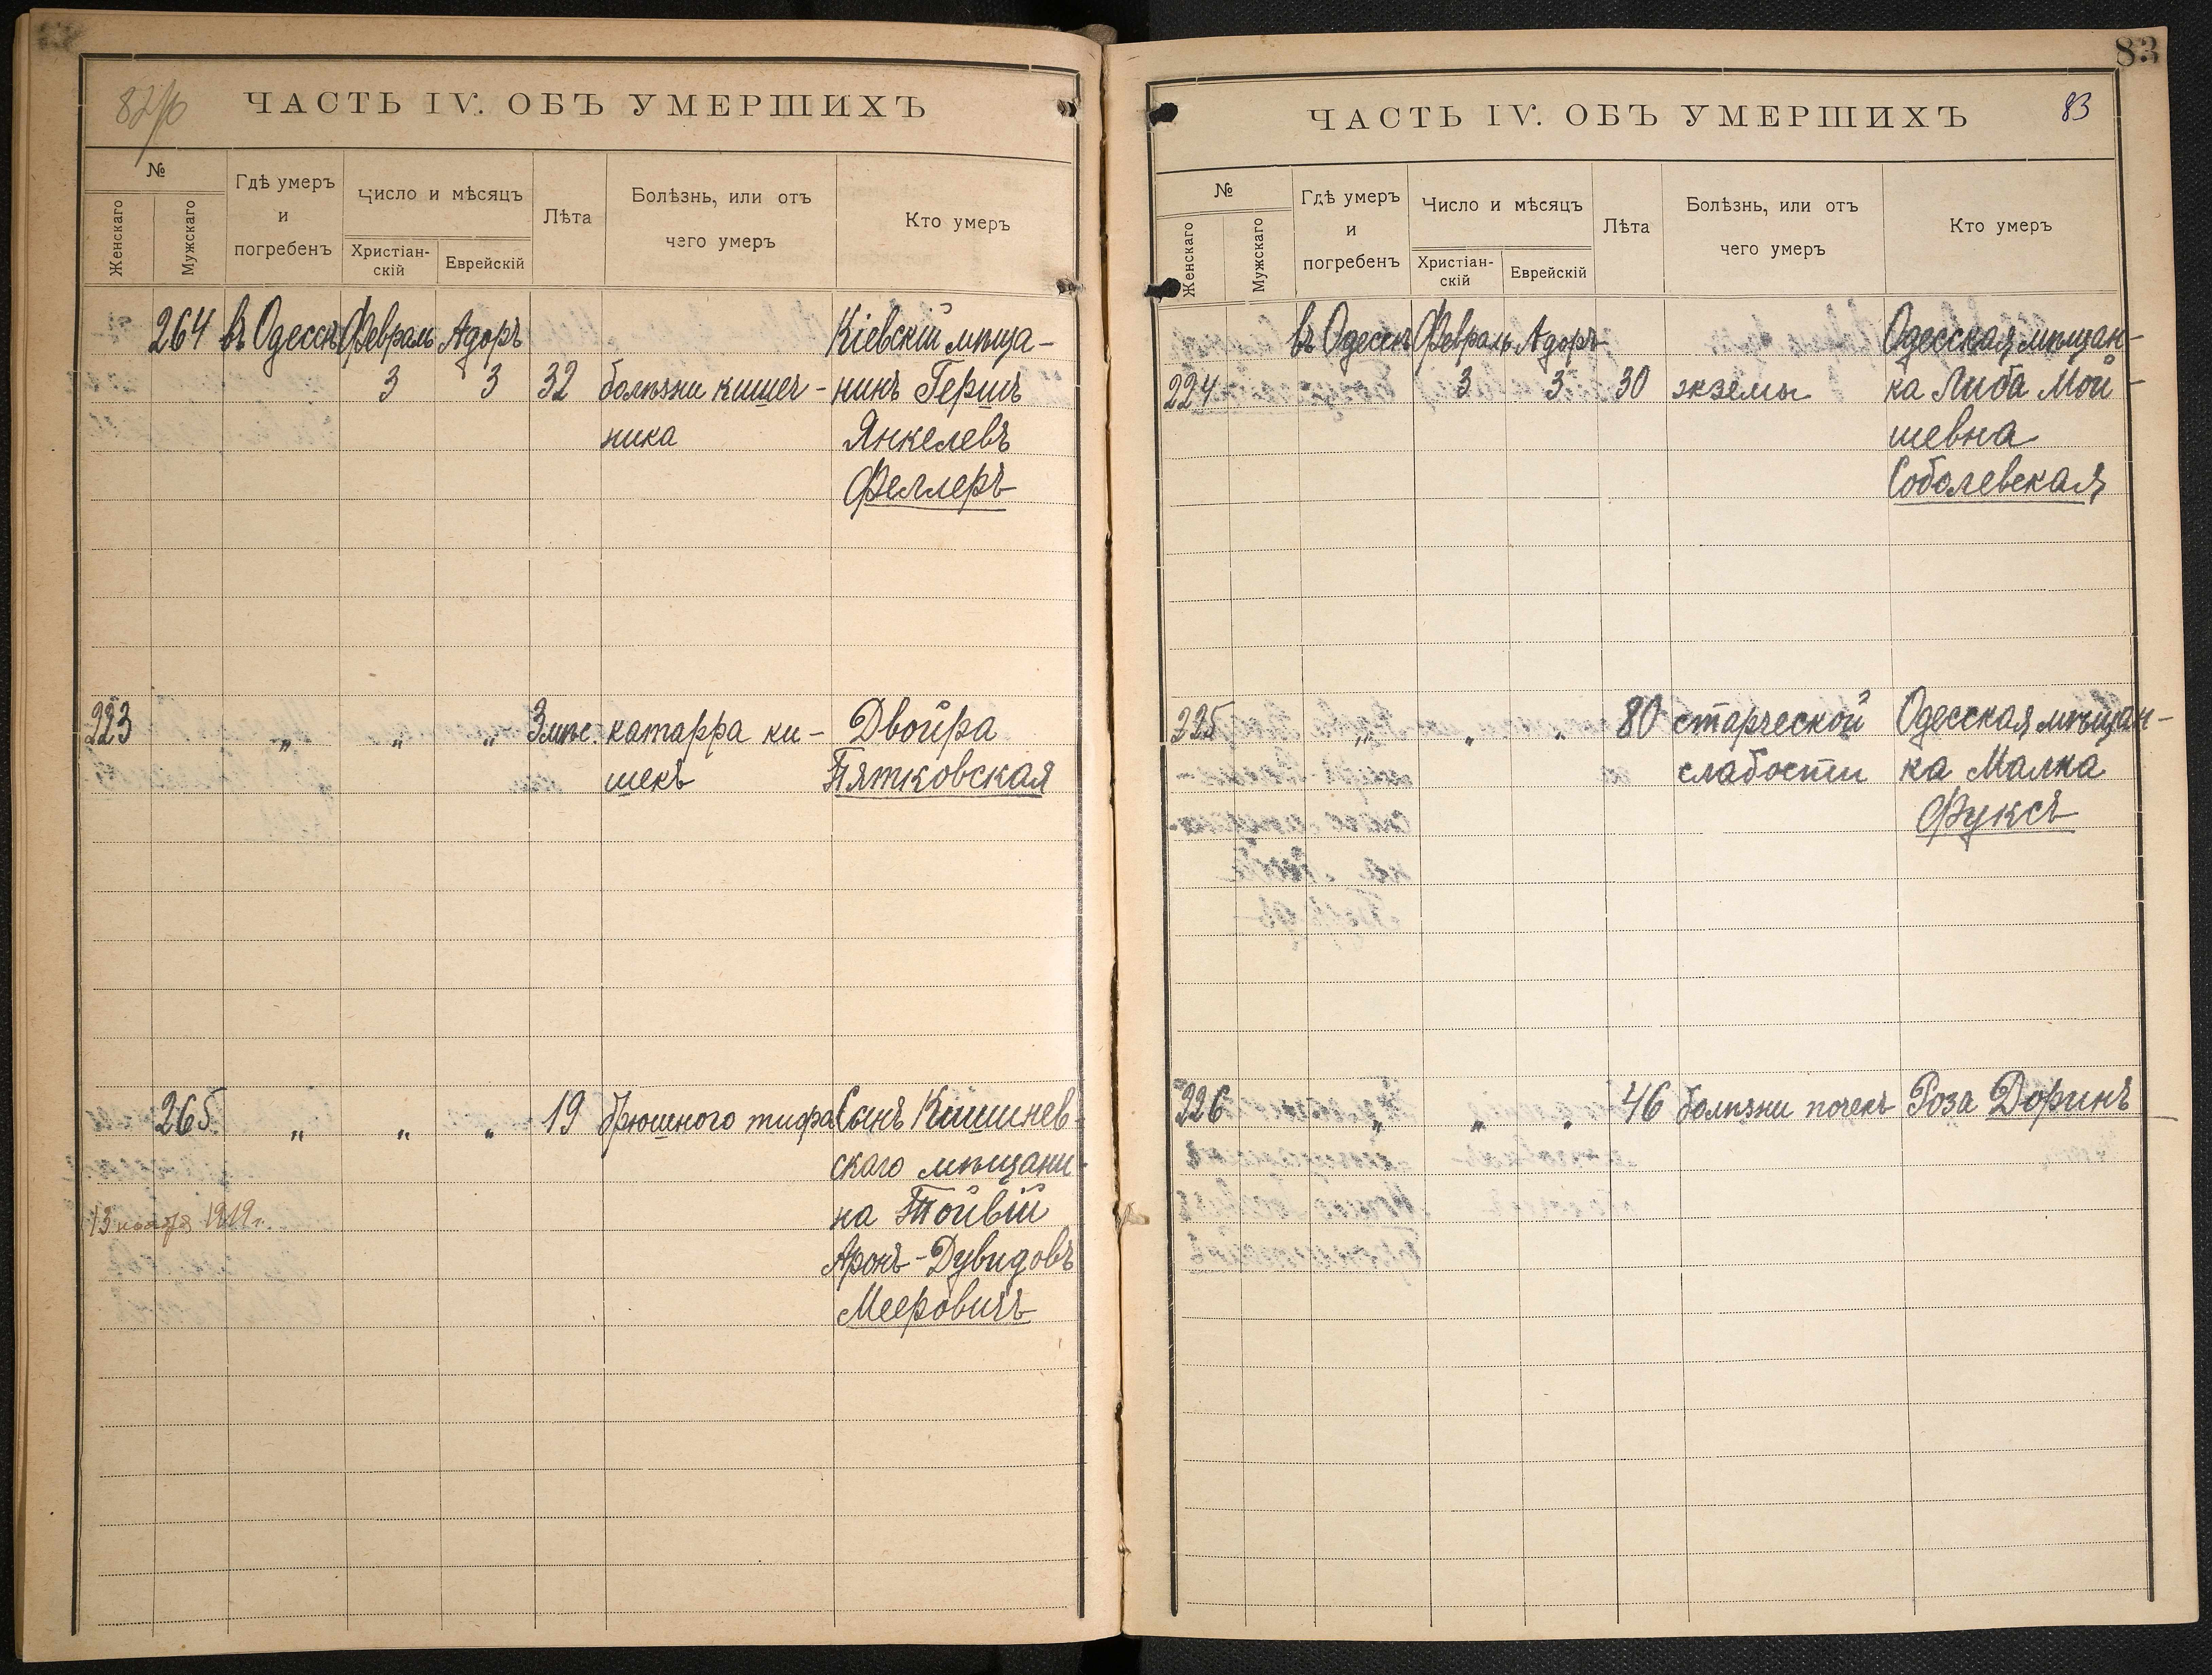 ЧАСТЬ IV. ОБЪ УМЕРШИХЪ
№
Женскаго
Мужскаго
Гдѣ умеръ
и
погребенъ
Число и мѣсяцъ
Христіан-
скій
Еврейскій
Лѣта
Болѣзнь, или отъ
чего умеръ
Кто умеръ
264 въ Одессѣ Февраль Адоръ Кіевскій мѣща-
3 3 32 болѣзни кишеч- нинъ Гершъ
ника Янкелевъ
Феллеръ
223 „ „ „ 3 мѣс. катарра ки- Двойра
шекъ Пятковская
265 „ „ „ 19 брюшного тифа Сынъ Кишинев-
скаго мѣщани-
13 ноября 1919 г. на Тойвій
Аронъ-Дувидовъ
Мееровичъ
83
ЧАСТЬ IV. ОБЪ УМЕРШИХЪ 83
№
Женскаго
Мужскаго
Гдѣ умеръ
и
погребенъ
Число и мѣсяцъ
Христіан-
скій
Еврейскій
Лѣта
Болѣзнь, или отъ
чего умеръ
Кто умеръ
въ Одессѣ Февраль Адоръ Одесская мѣщан-
224 3 3 30 экземы ка Либа Мой-
шевна
Соболевская
225 „ „ „ 80 старческой Одесская мѣщан-
слабости ка Малка
Фуксъ
226 „ „ „ 46 болѣзни почекъ Роза Доринъ